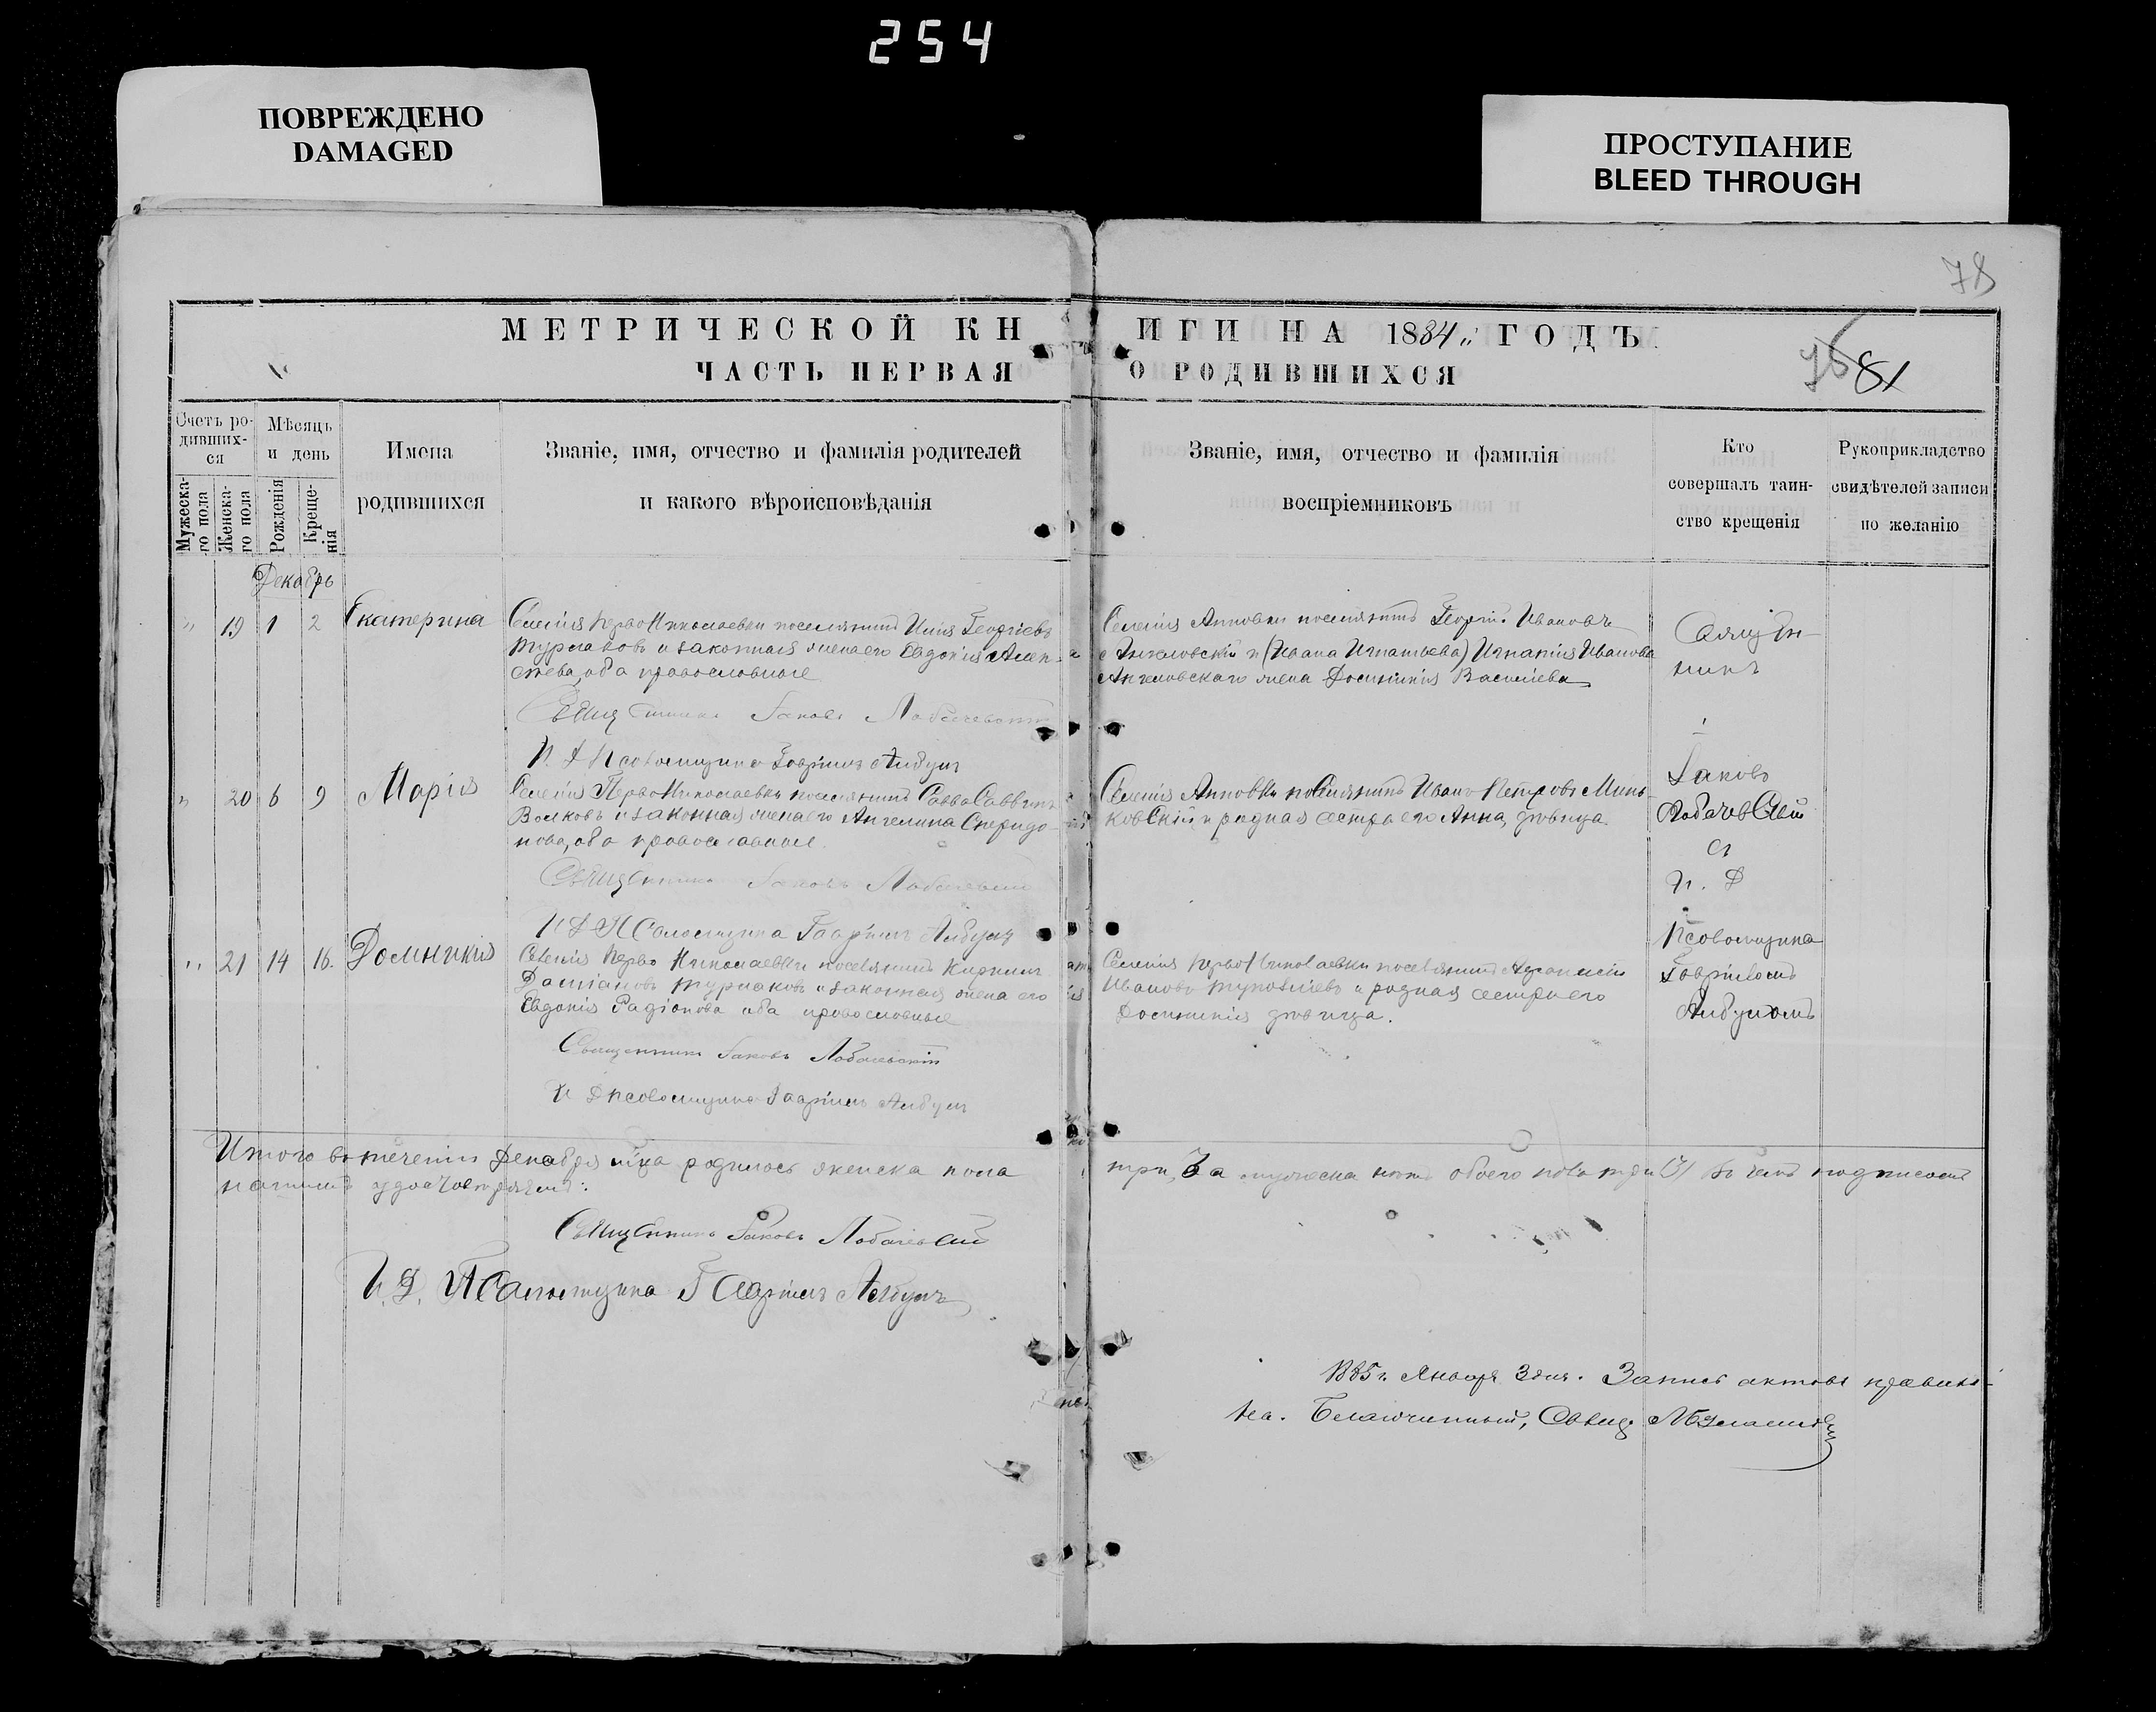 254
ПОВРЕЖДЕНО
DAMAGED
ПРОСТУПАНИЕ
BLEED THROUGH
78
МЕТРИЧЕСКОЙ КНИГИ НА 1884 ГОДЪ
ЧАСТЬ ПЕРВАЯ О РОДИВШИХСЯ
81
Счетъ ро-
дивших-
ся
Мужеска-
го пола
Женска-
го пола
Мѣсяцъ
и день
Рожденія
Креще-
нія
Имена
родившихся
Званіе, имя, отчество и фамилія родителей
и какого вѣроисповѣданія
Званіе, имя, отчество и фамилія
воспріемниковъ
Кто
совершалъ таин-
ство крещенія
Рукоприкладство
свидѣтелей записи
по желанію
Декабрь
19 1 2 Екатерина
Селенія Перво Николаевки поселянинъ Илія Георгіевъ
Турлаковъ и законная жена его Евдокія Алек-
сѣева, оба православные
Священникъ Іаковъ Лобачевскій
И. Д. Псаломщика Гавріилъ Албулъ
Селенія Анновки поселянинъ Георгій Ивановъ
Ангеловскій и (Ивана Игнатьева) Игнатія Иванова
Ангеловскаго жена Домникія Васильева
Священ-
никъ
20 6 9 Марія
Селенія Перво Николаевки поселянинъ Савва Саввинъ
Волковъ и законная жена его Ангелина Спиридо-
нова, оба православные
Священникъ Іаковъ Лобачевскій
И Д Псаломщика Гавріилъ Албулъ
Селенія Анновки поселянинъ Иванъ Петровъ Минь-
ковскій и родная сестра его Анна, дѣвица
Іаковъ
Лобачевскій
съ
И. Д
21 14 16. Домникія
Селенія Перво Николаевки поселянинъ Кириллъ
Даміановъ Турлаковъ и законная жена его
Евдокія Радіонова оба православные
Священникъ Іаковъ Лобачевскій
И Д Псаломщика Гавріилъ Албулъ
Селенія Перво Николаевки поселянинъ
Ивановъ и родная сестра его
Домникія дѣвица.
Псаломщика
Гавріиломъ
Албуломъ
Итого въ теченіи Декабря мѣсяца родилось женска пола три, а мужеска обоего пола три (3) Въ чемъ подписомъ
нашимъ удостовѣряемъ:
Священникъ Іаковъ Лобачевскій
И. Д. Псаломщика Гавріилъ Албулъ
1885 г. Января 3 дня. Запись актовъ правиль-
на. Благочинный, Свящ.